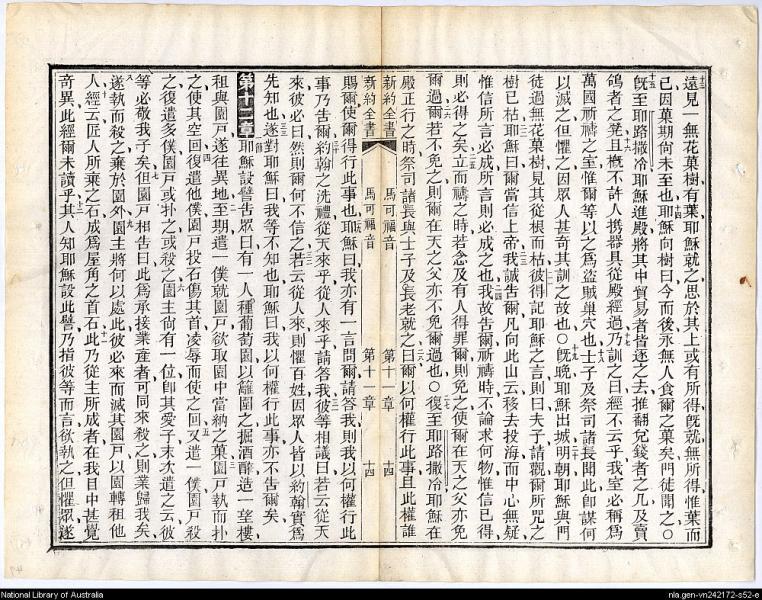 遠見一無花菓樹有葉耶穌就之思於其上或有所得旣就無所得惟葉而
已因菓期尙未至也耶穌向樹曰今而後永無人食爾之菓矣門徒聞之○
旣至耶路撒冷耶穌進殿將其中貿易者皆逐之去推翻兌錢者之几及賣
鴿者之凳且槪不許人攜器具從殿經過乃訓之曰經不云乎我室必稱爲
萬國祈禱之室惟爾等以之爲盜賊巢穴也士子及祭司諸長聞此卽謀何
以滅之但懼之因眾人甚奇其訓之故也○旣晚耶穌出城明朝耶穌與門
徒過無花菓樹見其從根而枯彼得記耶穌之言則曰夫子請觀爾所咒之
樹已枯耶穌曰爾當信上帝我誠告爾凡向此山云移去投海而中心無疑
惟信所言必成所言則必成之也我故告爾祈禱時不論求何物惟信已得
則必得之矣立而禱之時若念及有人得罪爾則免之使爾在天之父亦免
爾過爾若不免之則爾在天之父亦不免爾過也○復至耶路撒冷耶穌在
殿正行之時祭司諸長與士子及長老就之曰爾以何權行此事且此權誰
新約全書
馬可福音
第十一章
十四
新約全書
馬可福音
第十一章
十四
賜爾使爾得行此事也耶穌曰我亦有一言問爾請答我則我以何權行此
事乃告爾約翰之洗禮從天來乎從人來乎請答我彼等相議曰若云從天
來彼必曰然則爾何不信之若云從人來則懼百姓因眾人皆以約翰實爲
先知也遂對耶穌曰我等不知也耶穌曰我以何權行此事亦不告爾矣
第十二章耶穌設譬告眾曰有一人種葡萄園以籬圍之掘酒醡造一望樓
租與園戶遂往異地至期遣一僕就園戶欲取園中當納之菓園戶執而扑
之使其空回復遣他僕園戶投石傷其首凌辱而使之回又遣一僕園戶殺
之復遣多僕園戶或扑之或殺之園主尙有一位卽其愛子末次遣之云彼
等必敬我子矣但園戶相告曰此爲承接業產者可同來殺之則業歸我矣
遂執而殺之棄於園外園主將何以處此彼必來而滅其園戶以園轉租他
人經云匠人所棄之石成爲屋角之首石此乃從主所成者在我目中甚覺
奇異此經爾未讀乎其人知耶穌設此譬乃指彼等而言欲執之但懼眾遂
National Library of Australia
nla.gen-vn242172-s52-e